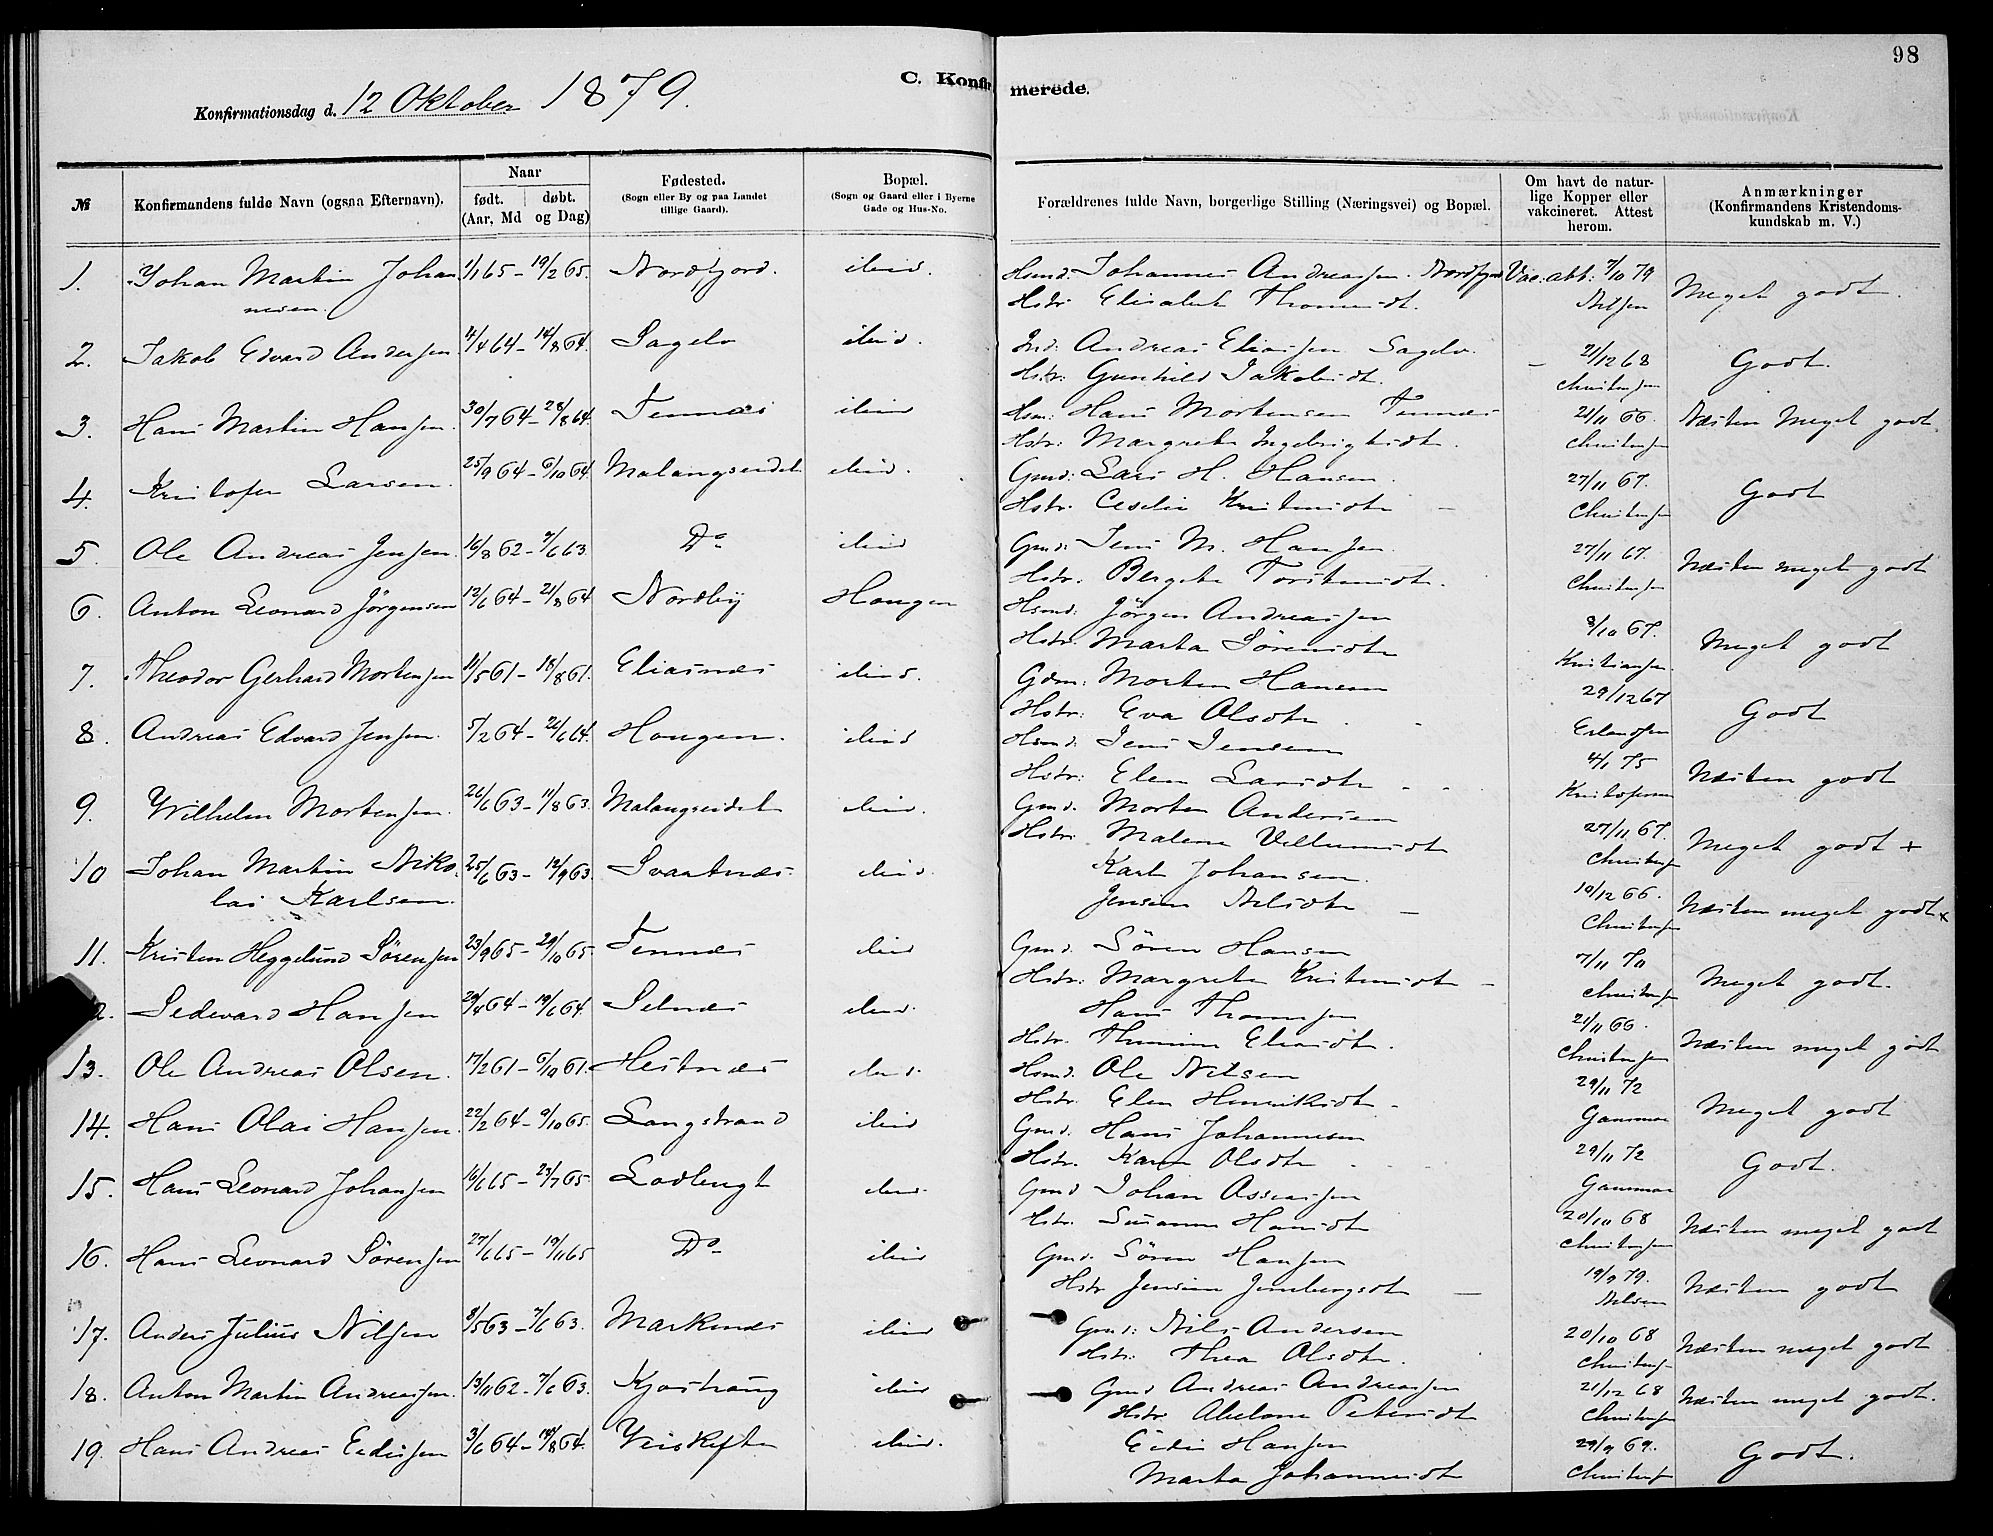 98
C. Konfirmerede.
Konfirmationsdag d. 12 Oktober 1879.
№ Konfirmandens fulde Navn (ogsaa Efternavn). Naar født. døbt. (Aar, Md og Dag) Fødested. (Sogn eller By og paa Landet tillige Gaard). Bopæl. (Sogn og Gaard eller i Byerne Gade og Hus-No. Forældrenes fulde Navn, borgerlige Stilling (Næringsvei) og Bopæl. Om havt de naturlige Kopper eller vakcineret. Attest herom. Anmærkninger (Konfirmandens Kristendomskundskab m. V.)
1. Johan Martin Johannesen. 1/1 65 - 19/2 65. Nordfjord. ibid. Hsmd: Johannes Andreassen. Nordfjord Vac. att: 7/10 79 Meget godt.
Hstr: Elisabet Thomasdt. Nilsen
2. Jakob Edvard Andersen 4/4 64 - 14/8 64. Sagelv ibid. Ind: Andreas Eliassen Sagelv. - 21/12 68 Godt.
Hstr: Gunhild Jakobsdt. Christensen
3. Hans Martin Hansen. 30/7 64 - 28/8 64. Tennes ibid Hsm: Hans Mortensen Tennes 21/11 66. Næsten Meget godt.
Hstr: Margrete Ingebrigtsdt. Christensen
4. Kristofer Larsen. 25/9 64 - 6/10 64. Malangseidet ibid. Gmd: Lars H. Hansen. 27/11 67. Godt
Hstr. Ceselie Kristensdtr - Christensen
5. Ole Andreas Jensen. 16/8 62 - 7/6 63. Do ibid Gmd: Jens M. Hansen. 27/11 67. Næsten meget godt
Hstr. Bergete Torstensdtr. Christensen
6. Anton Leonard Jörgensen 12/6 64 - 21/8 64 Nordby Hougen Hsmd: Jörgen Andreassen 8/10 67. Meget godt
Hstr: Marta Sörensdtr Kristiansen
7. Theodor Gerhard Mortensen 11/5 61 - 18/8 61. Eliasnes ibid. Gdm: Morten Hansen 29/12 67 Godt
Hstr: Eva Olsdtr. Erlandsen
8. Andreas Edvard Jensen. 5/2 64 - 26/6 64. Hougen. ibid Hsmd. Jens Jensen 4/1 75 Næsten godt
Hstr: Elen Larsdtr - - Kristofersen
9. Wilhelm Mortensen. 26/6 63 - 11/8 63. Malangseidet ibid. Gmd. Morten Andersen 27/11 67. Meget godt +
Hstr: Malena Villumsdtr Christensen
10 Johan Martin Nikolai Karlsen. 25/6 63 - 12/9 63. Svartnes ibid. Karl Johansen. 10/12 66. Næsten meget godt +
Jensine Nilsdtr - Christensen
11. Kristen Heggelund Sörensen 23/9 65 - 29/10 65. Tennes ibid Gmd. Sören Hansen 7/11 70 Meget godt.
Hstr: Margrete Kristensdtr - Christensen
2. Sedevard Hansen 29/4 64 - 19/6 64. Selnes ibid. Hans Thomsen 21/11 66. Næsten meget godt
Hstr. Eliasdtr. Christensen
13. Ole Andreas Olsen. 17/2 61 - 6/10 61. Hestnes ibid. Hsmd. Ole Nilsen 29/11 72 Meget godt
Hstr. Elen Henriksdtr - Gammar
14. Hans Olai Hansen. 22/2 64 - 9/10 65. Langstrand ibid Gmd. Hans Johannesen 29/11 72 Godt.
Hstr. Karen Olsdtr - - Gammar
15. Hans Leonard Johansen 16/6 65 - 23/7 65. Lodbugt ibid. Gmd Johan Asseassen 20/10 68 Næsten meget godt
Hstr. Susanna Hansdtr Christensen
16. Hans Leonard Sörensen 27/6 65 - 19/11 65 Do ibid Gmd. Sören Hansen 19/9 79. Næsten godt
Hstr Jensine Jensbergsdtr - Nilsen
17. Anders Julius Nilsen 8/5 63 - 7/6 63. Markenes ibid Gmd: Nils Andersen 20/10 68 Næsten meget godt
Hstr: Thea Olsdtr. Christensen
18. Anton Martin Andreassen. 13/11 62 - 7/6 63. Kjostraug ibid Gmd Andreas Andreassen 21/12 68 Næsten meget godt.
Hstr Abelone Petersdtr Christensen
19. Hans Andreas Eedissen 3/6 64 - 14/8 64. Veiskiften ibid. Eedis Hansen 29/9 69. Godt.
Marta Johannesdtr Christensen